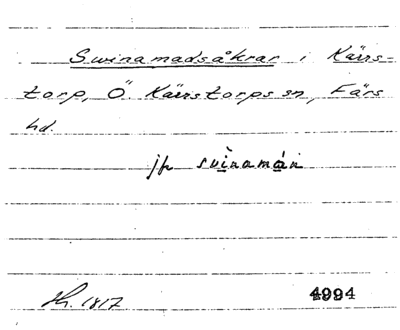 Swinamadsåkrar i Kärrs-
torp, Ö. Kärrstorps sn, Färs
hd.
jfr svinamån
Sk. 1817 4994